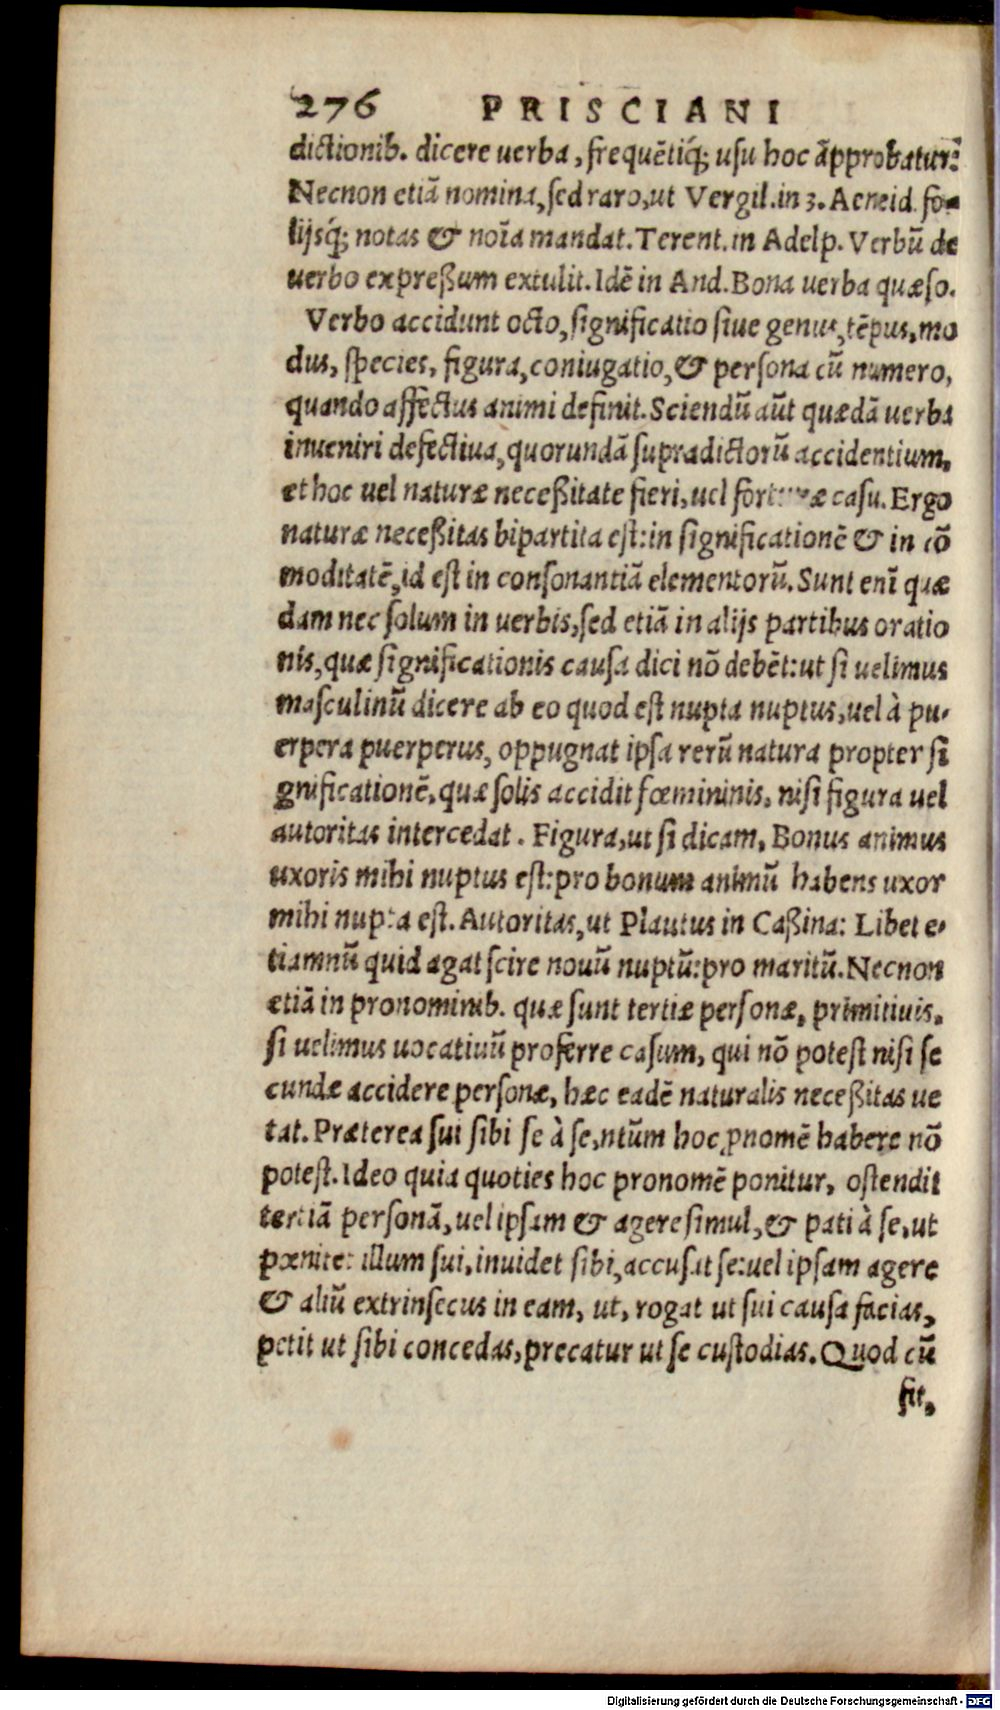 276 PRISCIANI
dictionib. dicere uerba, frequētiq́; usu hoc āpprobatur:
Necnon etiā nomina, sed raro, ut Vergil. in 3. Aeneid. fo-
lijsq́; notas & noĩa mandat. Terent. in Adelp. Verbū de
uerbo expreßum extulit. Idē in And. Bona uerba quæso.
Verbo accidunt octo, significatio siue genus, tēpus, mo
dus, species, figura, coniugatio, & persona cū numero,
quando affectus animi definit. Sciendū aūt quædā uerba
inueniri defectiua, quorundā supradictorū accidentium,
et hoc uel naturæ neceßitate fieri, uel fortunæ casu. Ergo
naturæ neceßitas bipartita est: in significationē & in cō
moditatē, id est in consonantiā elementorū. Sunt enī quæ
dam nec solum in uerbis, sed etiā in alijs partibus oratio
nis, quæ significationis causa dici nō debēt: ut si uelimus
masculinū dicere ab eo quod est nupta nuptus, uel à pu-
erpera puerperus, oppugnat ipsa rerū natura propter si
gnificationē, quæ solis accidit fœmininis, nisi figura uel
autoritas intercedat. Figura, ut si dicam, Bonus animus
uxoris mihi nuptus est: pro bonum animū habens uxor
mihi nupta est. Autoritas, ut Plautus in Caßina: Libet e-
tiamnū quid agat scire nouū nuptū: pro maritū. Necnon
etiā in pronominib. quæ sunt tertiæ personæ, primitiuis,
si uelimus uocatiuū proferre casum, qui nō potest nisi se
cundæ accidere personæ, hæc eadē naturalis neceßitas ue
tat. Præterea sui sibi se à se, ntūm hoc ꝓnomē habere nō
potest. Ideo quia quoties hoc pronomē ponitur, ostendit
tertiā personā, uel ipsam & agere simul, & pati à se, ut
pœnitet illum sui, inuidet sibi, accusat se: uel ipsam agere
& aliū extrinsecus in eam, ut, rogat ut sui causa facias,
petit ut sibi concedas, precatur ut se custodias. Quod cū
fit,
Digitalisierung gefördert durch die Deutsche Forschungsgemeinschaft - DFG